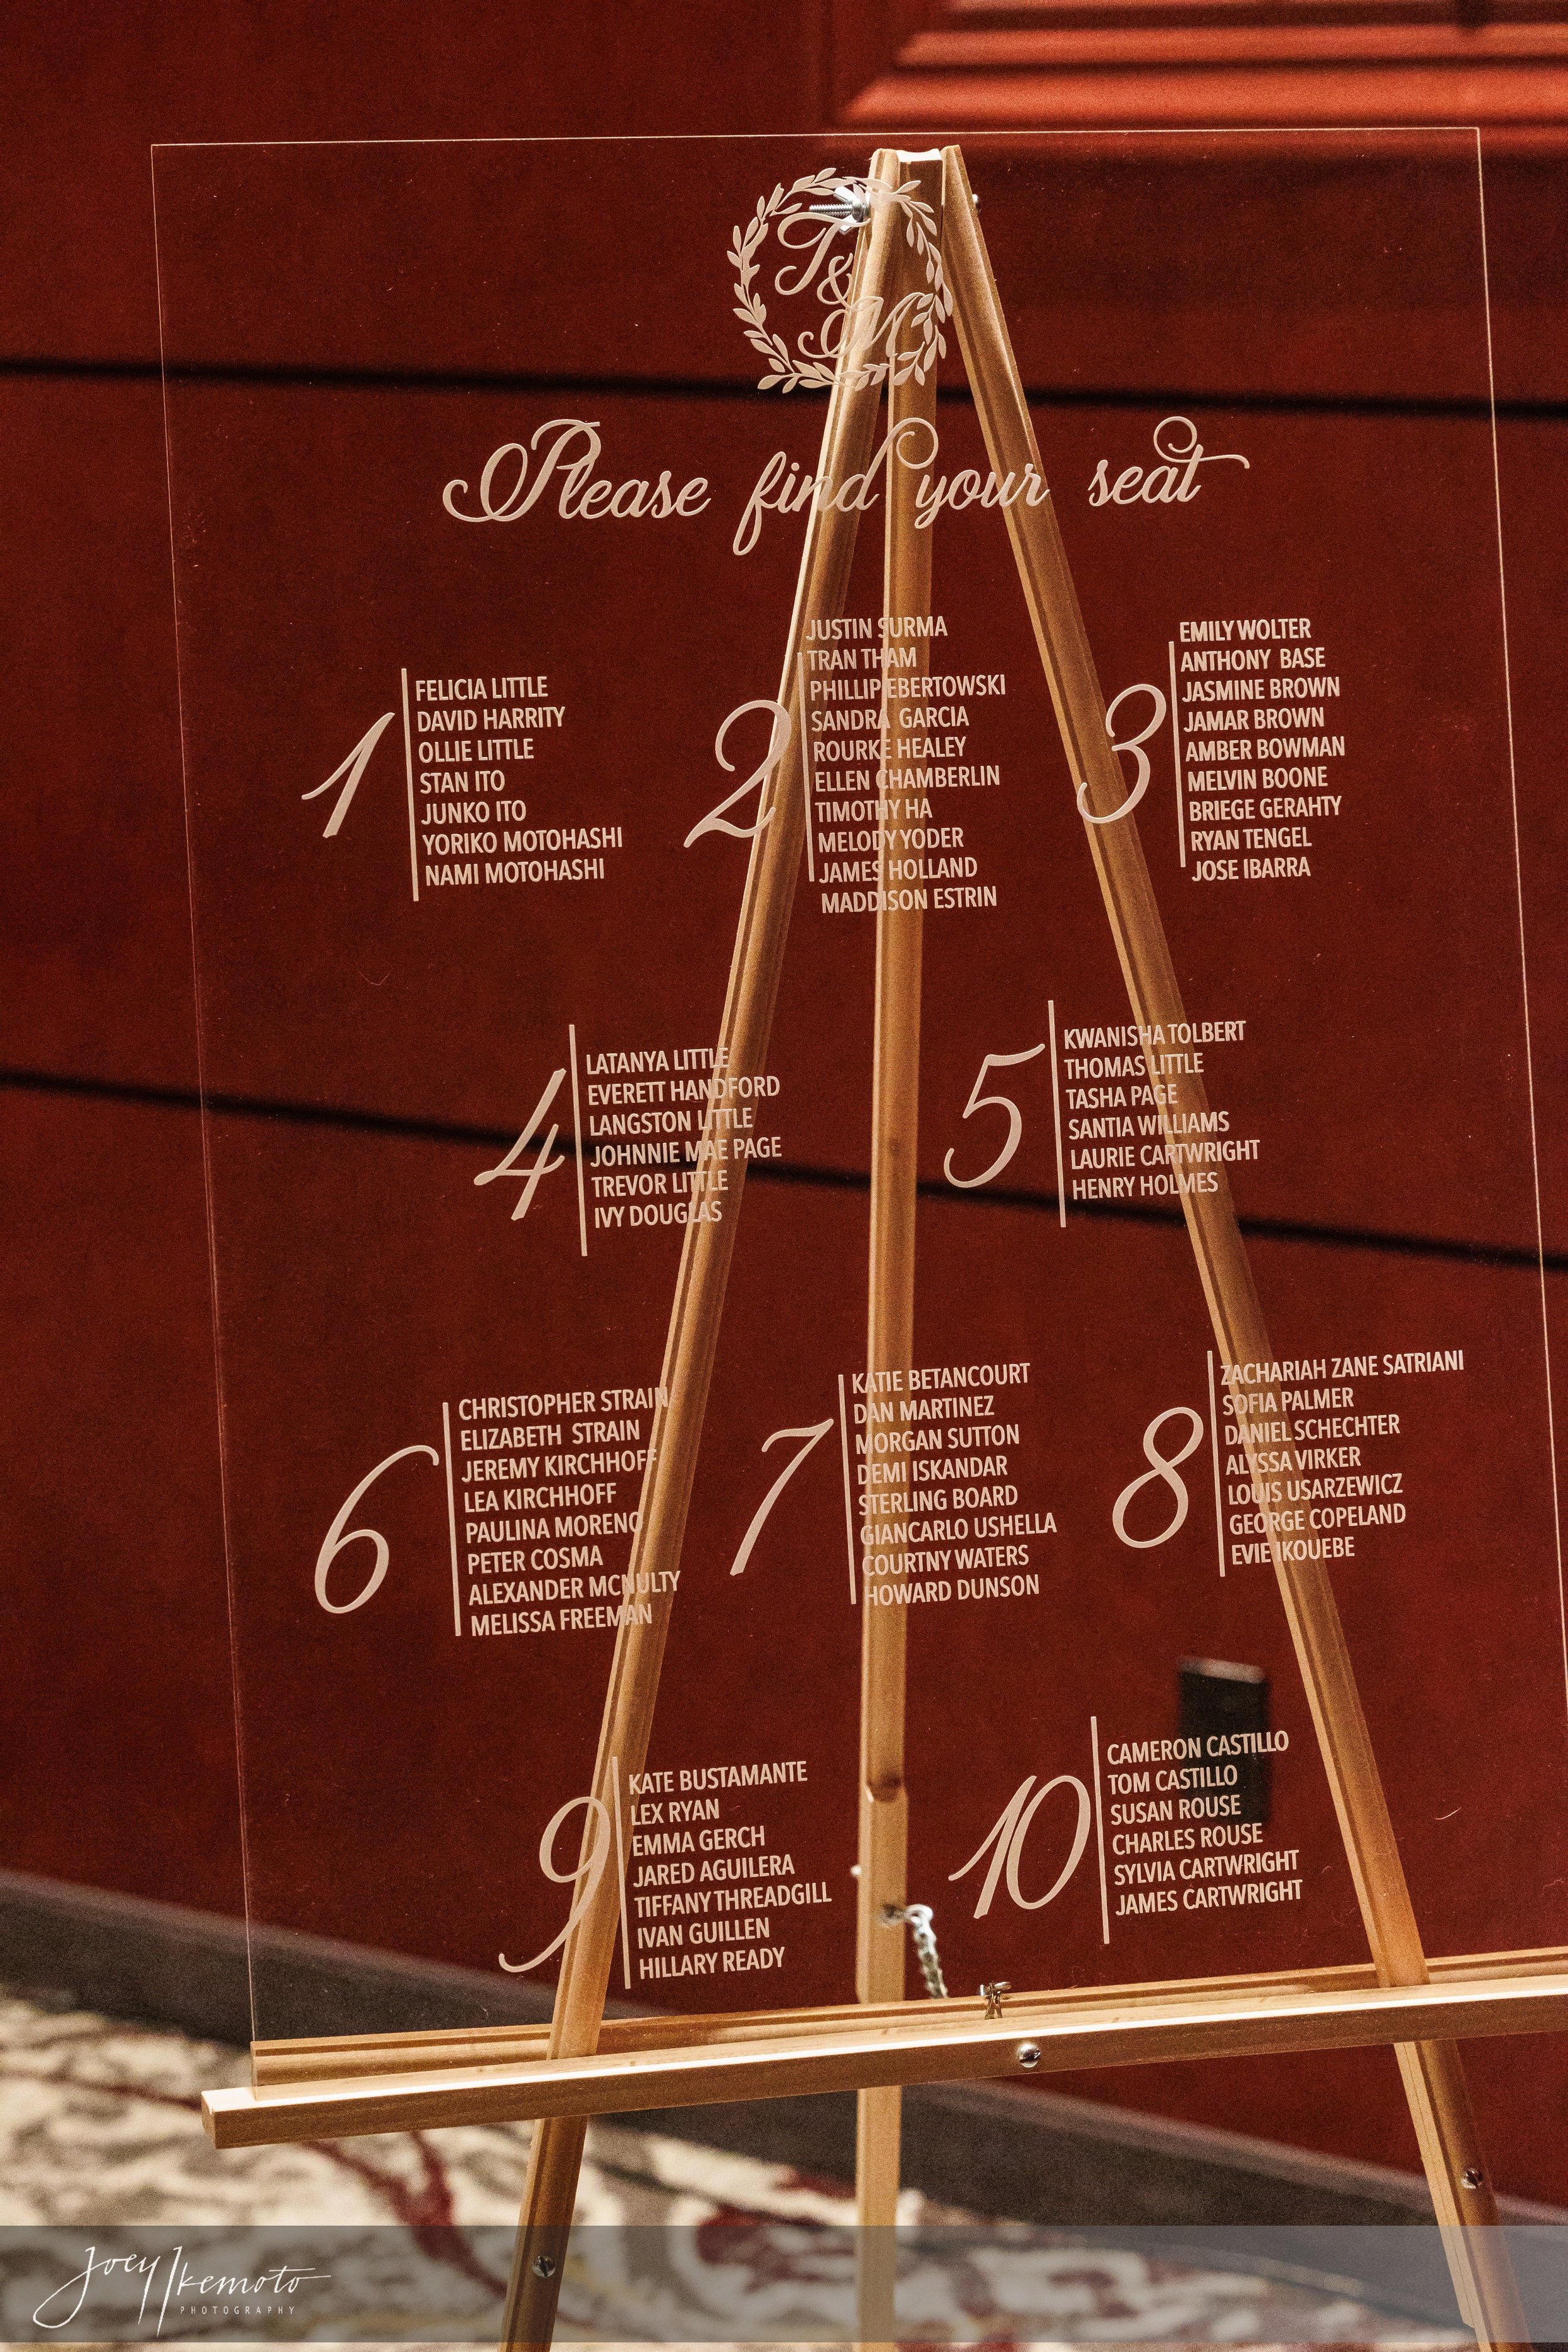 T
&
M
Please find your seat
1
FELICIA LITTLE
DAVID HARRITY
OLLIE LITTLE
STAN ITO
JUNKO ITO
YORIKO MOTOHASHI
NAMI MOTOHASHI
2
JUSTIN SURMA
TRAN THAM
PHILLIP EBERTOWSKI
SANDRA GARCIA
ROURKE HEALEY
ELLEN CHAMBERLIN
TIMOTHY HA
MELODY YODER
JAMES HOLLAND
MADDISON ESTRIN
3
EMILY WOLTER
ANTHONY BASE
JASMINE BROWN
JAMAR BROWN
AMBER BOWMAN
MELVIN BOONE
BRIEGE GERAHTY
RYAN TENGEL
JOSE IBARRA
4
LATANYA LITTLE
EVERETT HANDFORD
LANGSTON LITTLE
JOHNNIE MAE PAGE
TREVOR LITTLE
IVY DOUGLAS
5
KWANISHA TOLBERT
THOMAS LITTLE
TASHA PAGE
SANTIA WILLIAMS
LAURIE CARTWRIGHT
HENRY HOLMES
6
CHRISTOPHER STRAIN
ELIZABETH STRAIN
JEREMY KIRCHHOFF
LEA KIRCHHOFF
PAULINA MORENO
PETER COSMA
ALEXANDER MCNULTY
MELISSA FREEMAN
7
KATIE BETANCOURT
DAN MARTINEZ
MORGAN SUTTON
DEMI ISKANDAR
STERLING BOARD
GIANCARLO USHELLA
COURTNY WATERS
HOWARD DUNSON
8
ZACHARIAH ZANE SATRIANI
SOFIA PALMER
DANIEL SCHECHTER
ALYSSA VIRKER
LOUIS USARZEWICZ
GEORGE COPELAND
EVIE IKOUEBE
9
KATE BUSTAMANTE
LEX RYAN
EMMA GERCH
JARED AGUILERA
TIFFANY THREADGILL
IVAN GUILLEN
HILLARY READY
10
CAMERON CASTILLO
TOM CASTILLO
SUSAN ROUSE
CHARLES ROUSE
SYLVIA CARTWRIGHT
JAMES CARTWRIGHT
Joey Ikemoto
PHOTOGRAPHY